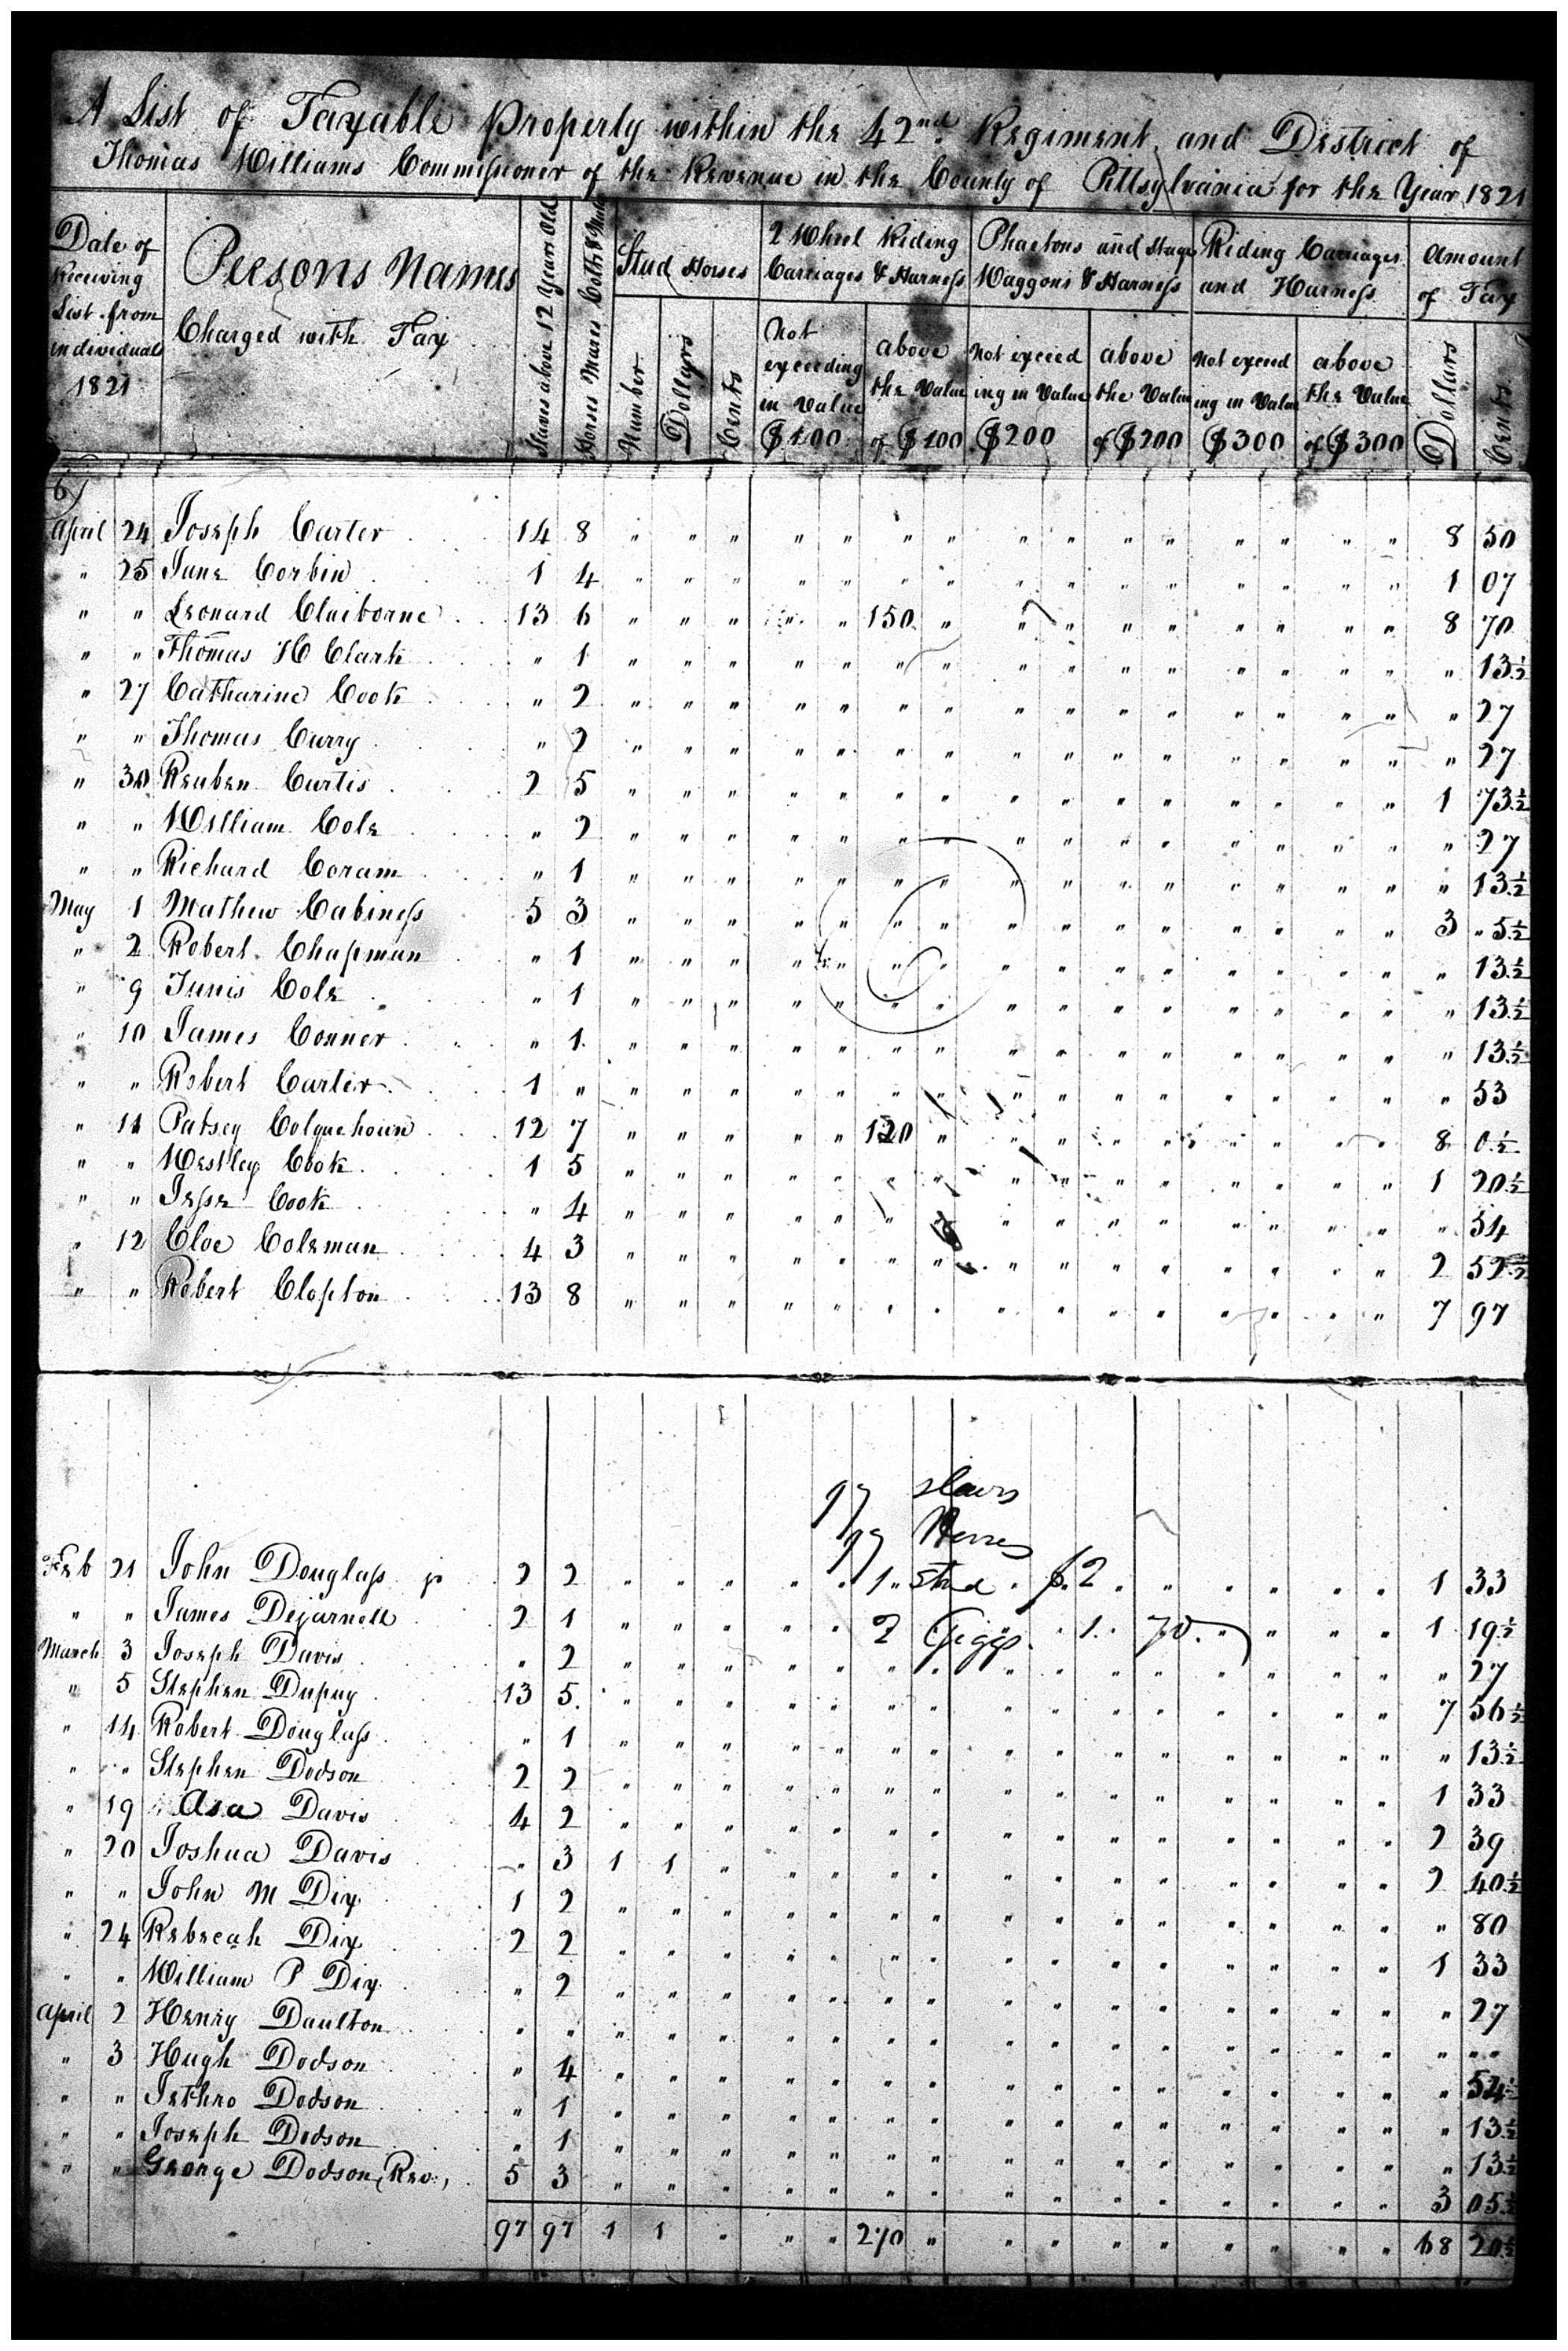 A List of Taxable Property within the 42nd Regiment and District of
Thomas Williams Commissioner of the Revenue in the County of Pittsylvania for the Year 1821
Date of Receiving List from individuals 1821
Persons Names Charged with Tax
Slaves above 12 Years Old
Horses Mares Colts & Mules
Stud Horses
Number
Dollars
Cents
2 Wheel Riding Carriages & Harness
Not exceeding in Value $100
above the Value of $100
Phaetons and Stage Waggons & Harness
Not exceeding in Value $200
above the Value of $200
Riding Carriages and Harness
Not exceeding in Value $300
above the Value of $300
Amount of Tax
Dollars
Cents
6
April 24 Joseph Carter 14 8 " " " " " " " " " " " " " " " 8 50
" 25 June Corbin 1 4 " " " " " " " " " " " " " " " 1 07
" " Leonard Claiborne 13 6 " " " " " 150 " " " " " " " " " 8 70
" " Thomas H Clark " 1 " " " " " " " " " " " " " " " " 13½
" 27 Catharine Cook " 2 " " " " " " " " " " " " " " " " 27
" " Thomas Curry " 2 " " " " " " " " " " " " " " " " 27
" 30 Reuben Curtis 2 5 " " " " " " " " " " " " " " " 1 73½
" " William Cole " 2 " " " " " " " " " " " " " " " " 27
" " Richard Coram " 1 " " " " " " " " " " " " " " " " 13½
May 1 Mathew Cabiness 5 3 " " " " " " " " " " " " " " " 3 " 5½
" 2 Robert Chapman " 1 " " " " " " " " " " " " " " " " 13½
" 9 Junis Cole " 1 " " " " " " " " " " " " " " " " 13½
" 10 James Conner " 1 " " " " " " " " " " " " " " " " 13½
" " Robert Carter 1 " " " " " " " " " " " " " " " " " 53
" 11 Patsey Colquehoun 12 7 " " " " " 120 " " " " " " " " " 8 0½
" " Westley Cook 1 5 " " " " " " " " " " " " " " " 1 20½
" " Jesse Cook " 4 " " " " " " " " " " " " " " " " 54
" 12 Cloe Coleman 4 3 " " " " " " " " " " " " " " " 2 52½
" " Robert Clopton 13 8 " " " " " " " " " " " " " " " 7 97
97 slaves
97 Horses
Feb 21 John Douglass jr 2 2 " " " " " 1 " Stud " $2 " " " " " " 1 33
" " James Dejarnett 2 1 " " " " " 2 Giggs " 1 " 70 " " " " 1 19½
March 3 Joseph Davis " 2 " " " " " " " " " " " " " " " " 27
" 5 Stephen Dupuy 13 5 " " " " " " " " " " " " " " " 7 56½
" 14 Robert Douglass " 1 " " " " " " " " " " " " " " " " 13½
" " Stephen Dodson 2 2 " " " " " " " " " " " " " " " 1 33
" 19 Asa Davis 4 2 " " " " " " " " " " " " " " " 2 39
" 20 Joshua Davis " 3 1 1 " " " " " " " " " " " " " 2 40½
" " John M Dix 1 2 " " " " " " " " " " " " " " " " 80
" 24 Rebecah Dix 2 2 " " " " " " " " " " " " " " " 1 33
" " William P Dix " 2 " " " " " " " " " " " " " " " " 27
April 2 Henry Daulton " " " " " " " " " " " " " " " " " " " "
" 3 Hugh Dodson " 4 " " " " " " " " " " " " " " " " 54
" " Jethro Dodson " 1 " " " " " " " " " " " " " " " " 13½
" " Joseph Dodson " 1 " " " " " " " " " " " " " " " " 13½
" " George Dodson (Rev), 5 3 " " " " " " " " " " " " " " " 3 05½
97 97 1 1 " " " 270 " " " " " " " " " 68 20½